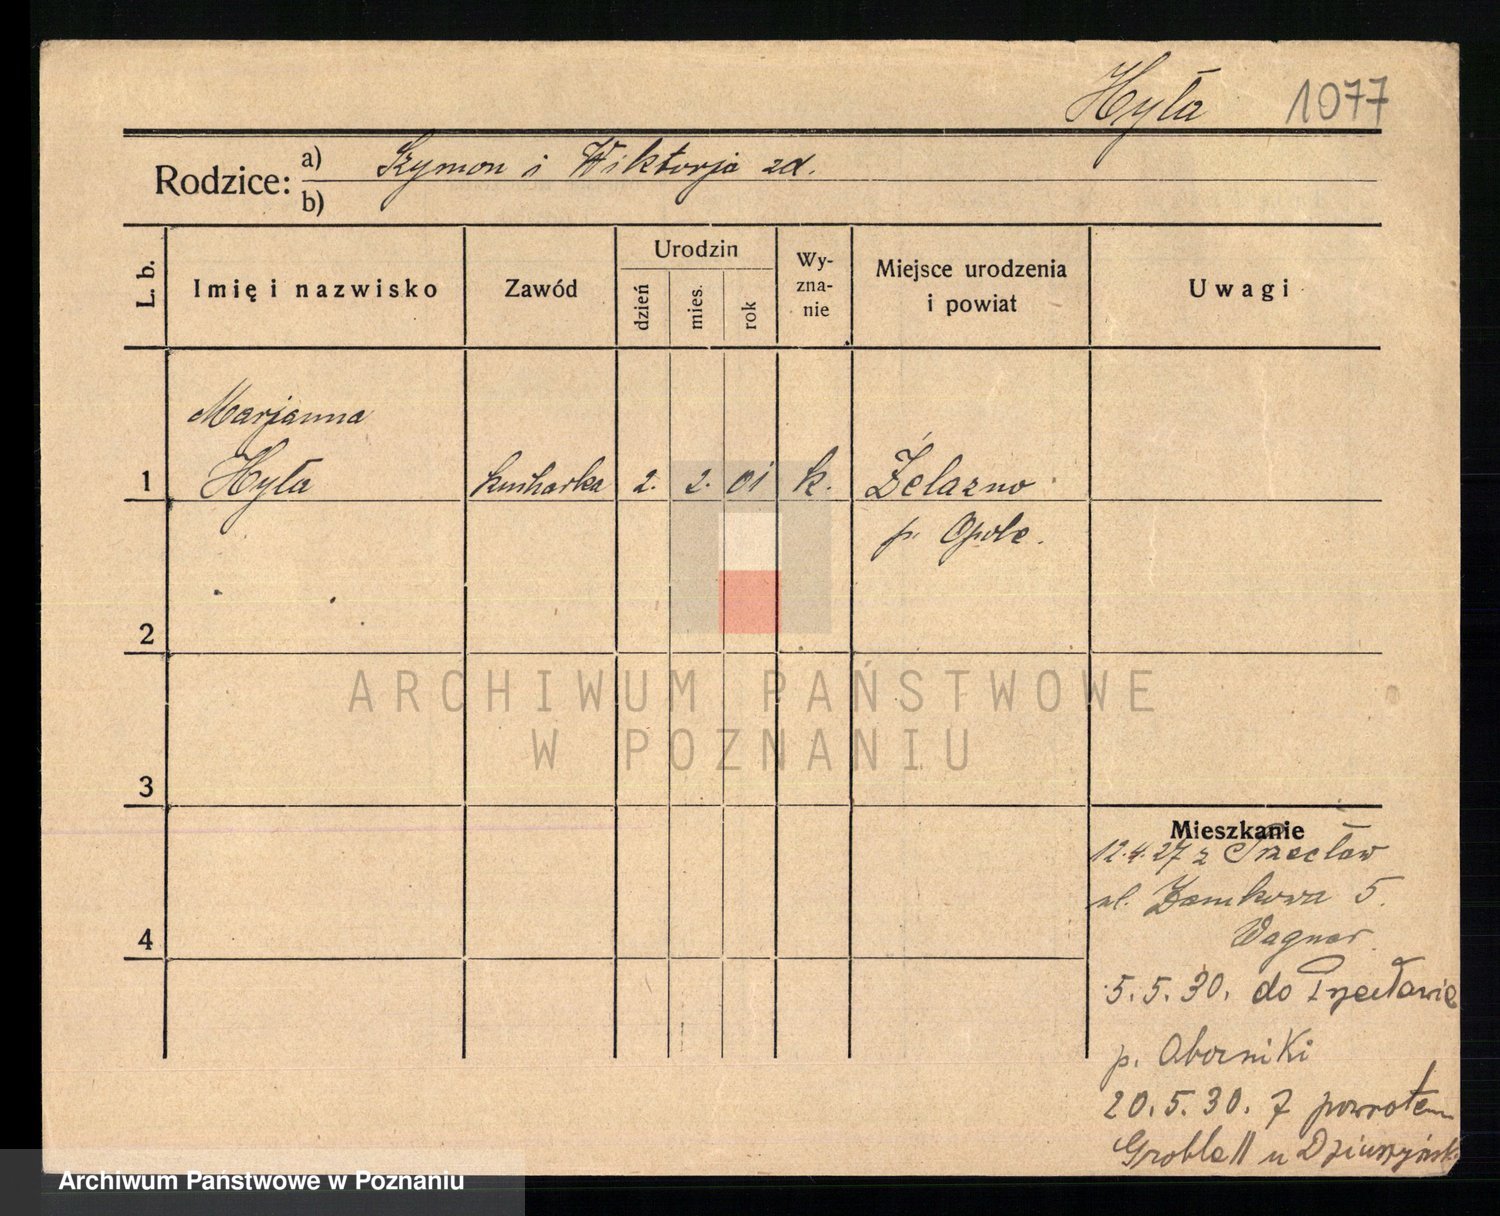 Hyła 1077
Rodzice:
a) Szymon i Wiktorja zd.
b)
L. b.
Imię i nazwisko
Zawód
Urodzin
dzień
mies.
rok
Wy-
zna-
nie
Miejsce urodzenia
i powiat
Uwagi
Marjanna
1 Hyła kucharka 2. 2. 01 k. Żelazno
p. Opole.
2
3
4
Mieszkanie
12.4.27 z
ul. Zamkowa 5.
Wagner.
5.5.30. do
p. Oborniki
20.5.30. z powrotem
Grobla 11 u
ARCHIWUM PAŃSTWOWE
W POZNANIU
Archiwum Państwowe w Poznaniu